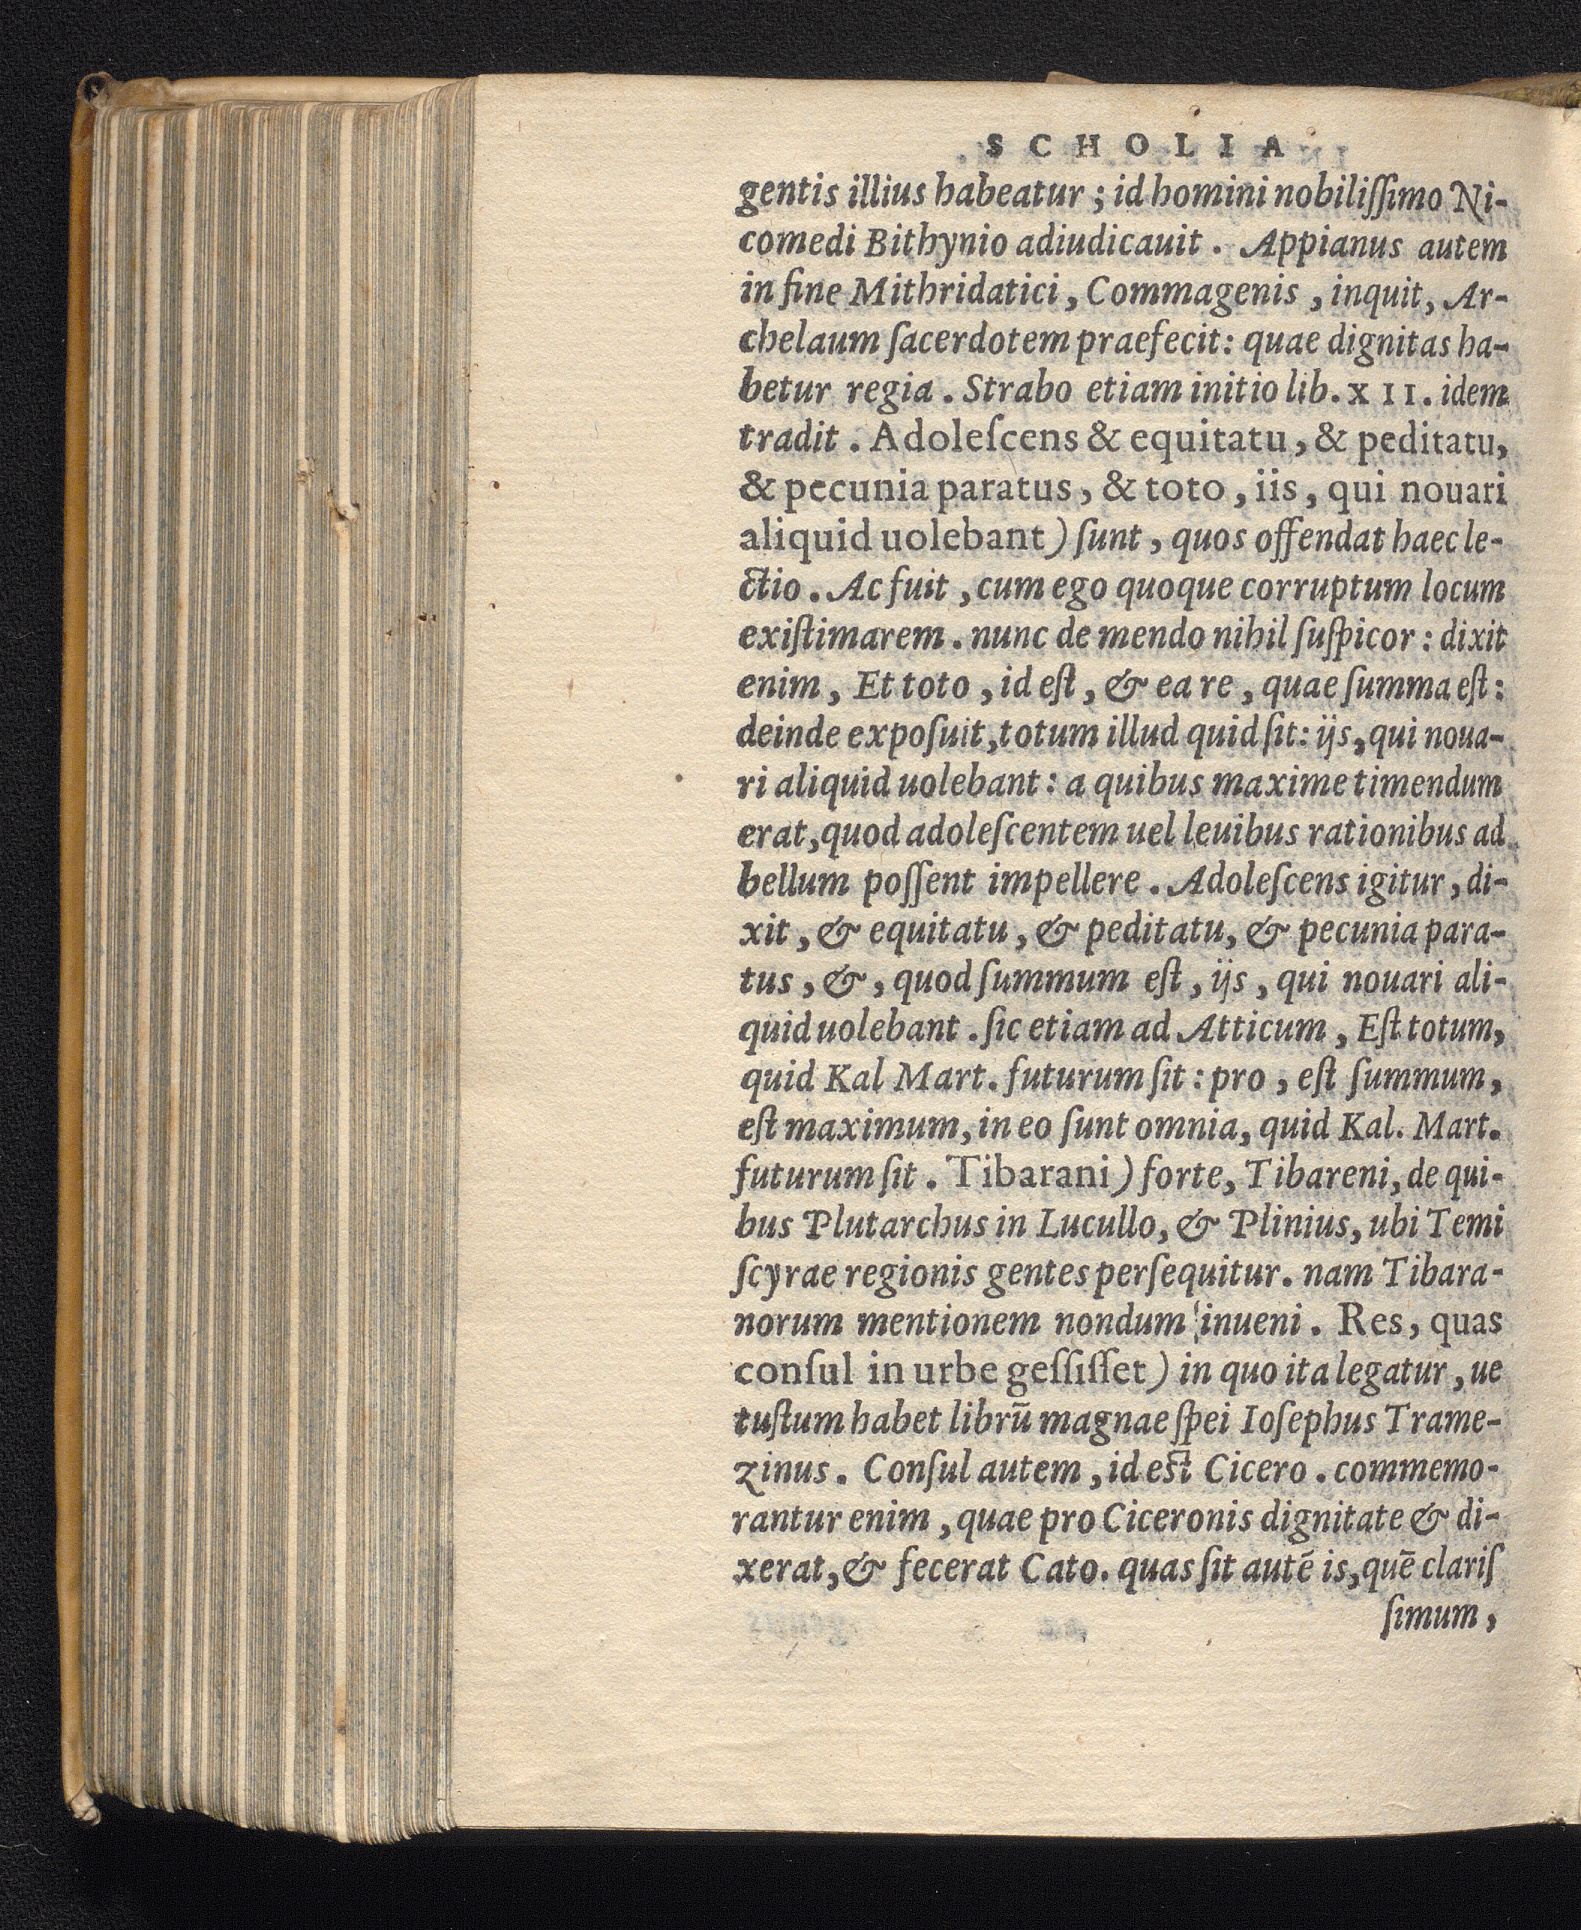 SCHOLIA
gentis illius habeatur ; id homini nobiliſſimo Ni-
comedi Bithynio adiudicauit . Appianus autem
in fine Mithridatici , Commagenis , inquit, Ar-
chelaum ſacerdotem praefecit: quae dignitas ha-
betur regia . Strabo etiam initio lib. XII. idem
tradit . Adoleſcens & equitatu, & peditatu,
& pecunia paratus, & toto, iis, qui nouari
aliquid uolebant) ſunt, quos offendat haec le-
ctio . Ac fuit , cum ego quoque corruptum locum
exiſtimarem . nunc de mendo nihil ſuſpicor : dixit
enim, Et toto , id eſt, & ea re , quae ſumma eſt:
deinde expoſuit, totum illud quid ſit: ijs, qui noua-
ri aliquid uolebant: a quibus maxime timendum
erat, quod adoleſcentem uel leuibus rationibus ad
bellum poſſent impellere . Adoleſcens igitur, di-
xit , & equitatu, & peditatu, & pecunia para-
tus , & , quod ſummum eſt, ijs , qui nouari ali-
quid uolebant . ſic etiam ad Atticum , Eſt totum,
quid Kal Mart. futurum ſit: pro , eſt ſummum,
eſt maximum, in eo ſunt omnia, quid Kal. Mart.
futurum ſit . Tibarani) forte, Tibareni, de qui-
bus Plutarchus in Lucullo, & Plinius, ubi Temi
ſcyrae regionis gentes perſequitur. nam Tibara-
norum mentionem nondum inueni . Res, quas
conſul in urbe geſſiſſet) in quo ita legatur, ue
tuſtum habet librū magnae ſpei Ioſephus Trame-
zinus. Conſul autem , id est Cicero . commemo-
rantur enim , quae pro Ciceronis dignitate & di-
xerat, & fecerat Cato. quas ſit autē is, quē clariſ
ſimum,